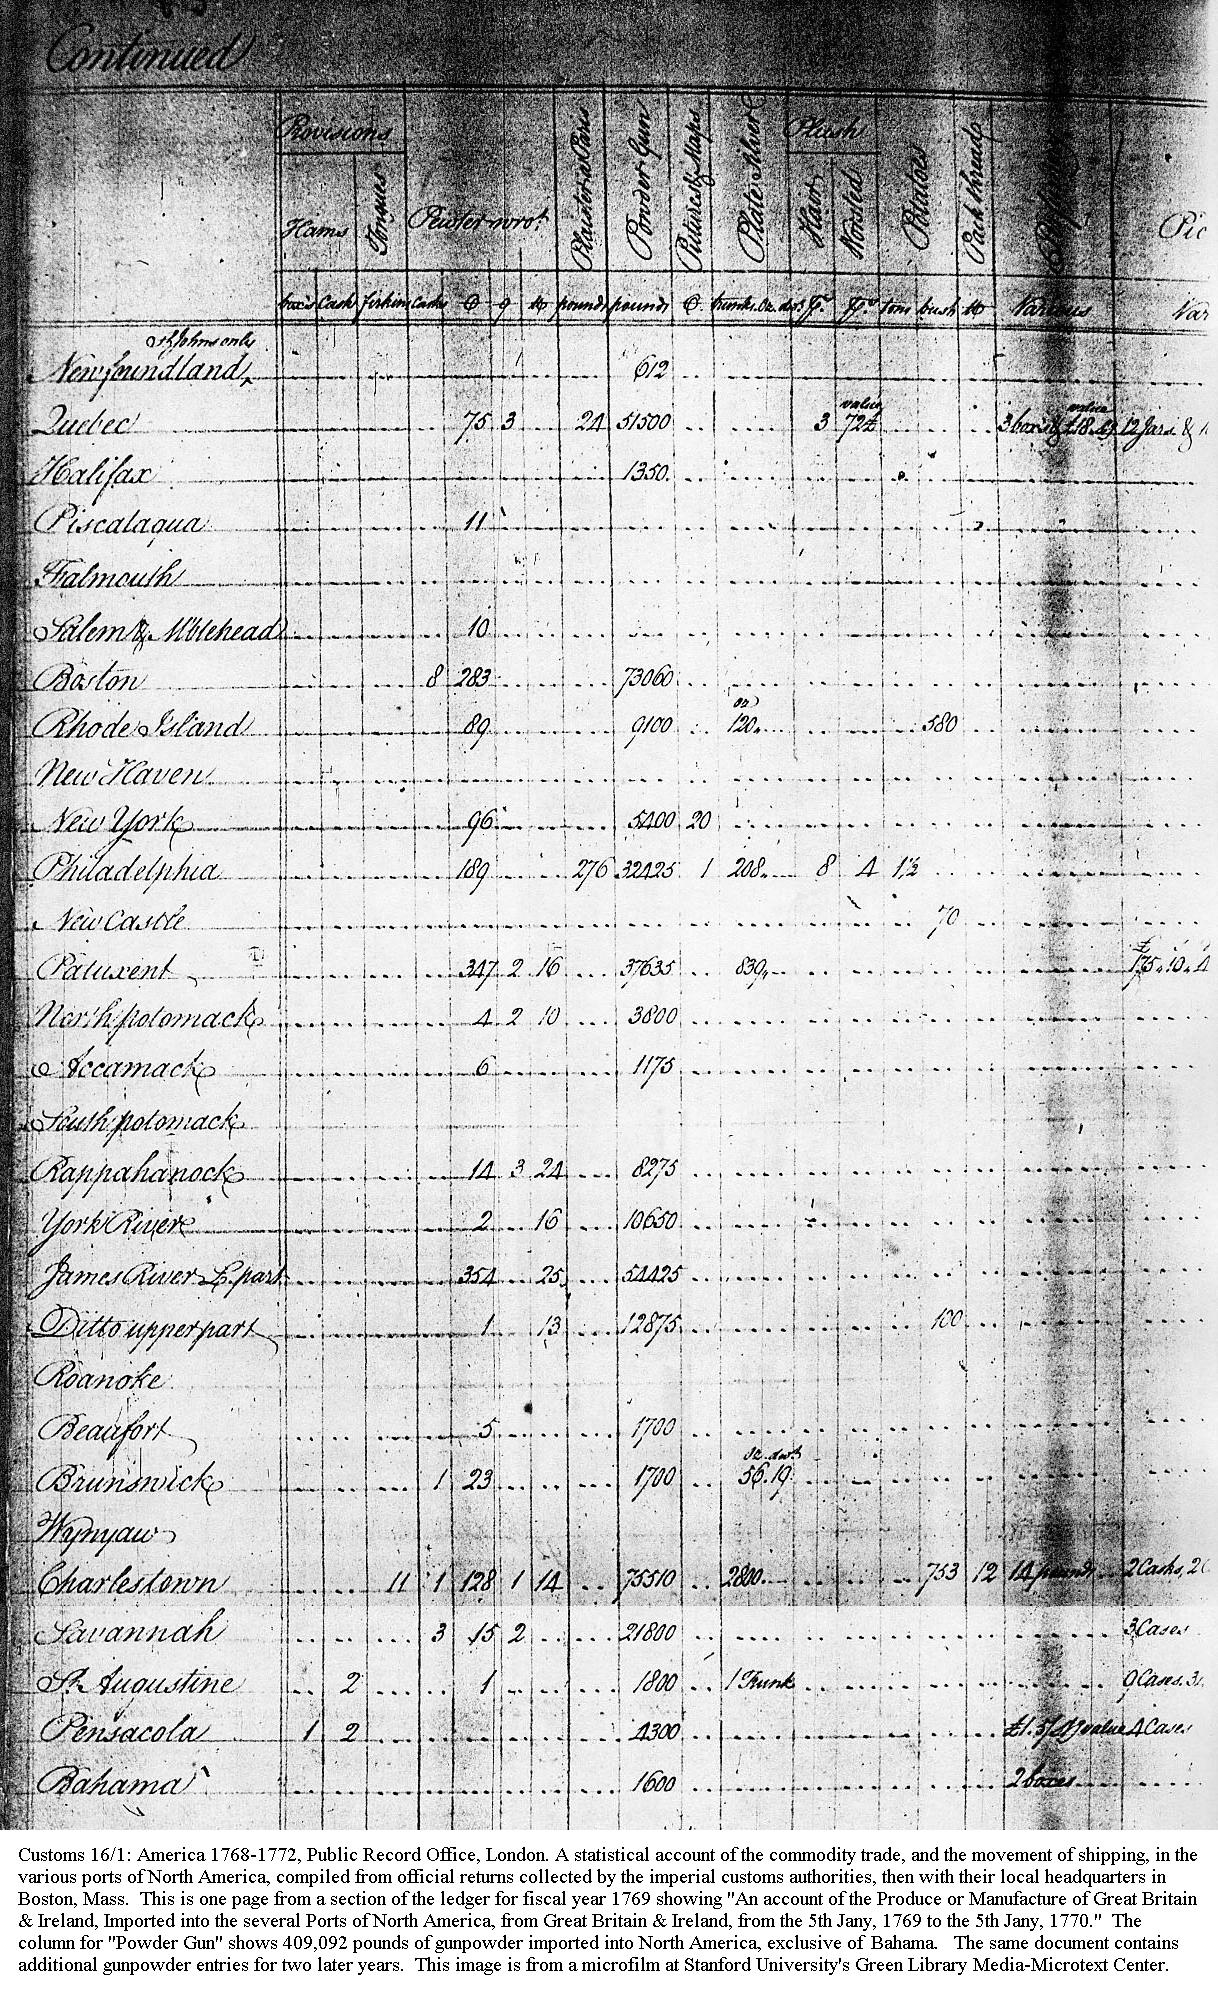 Continued
Provisions Plush
Hams Tongues Pewter wrot. Plaister a Paris Powder Gun Pictures & Maps Plate Silver Hair Worsted Potatoes Pack thread Pic
boxes Cask firkins casks C q lb pounds pounds C trunks. Oz. dwt. ps. ps. tons bush lb Various Var
St. Johns only
Newfoundland 612
value value
Quebec 75 3 24 51500 3 72£ 3 boxes & £18 12 Jars &
Halifax 1350
Piscataqua 11
Falmouth
Salem & M'blehead 10
Boston 8 283 73060
oz
Rhode Island 89 9100 120 580
New Haven
New York 96 5400 20
Philadelphia 189 276 32425 1 208 8 4 1½
New Castle 70
£
Patuxent 347 2 16 37635 839 175.10.4
North potomack 4 2 10 3800
Accamack 6 1175
South potomack
Rappahanock 14 3 24 8275
York River 2 16 10650
James River L. part 354 25 54425
Ditto upper part 1 13 12875 100
Roanoke
Beaufort 5 1700
oz. dwt
Brunswick 1 23 1700 56.19
Wynyaw
Charlestown 11 1 128 1 14 75510 2800 753 12 14 pounds 2 Casks, 2
Savannah 3 15 2 21800 3 Cases
St. Augustine 2 1 1800 1 Trunk 9 Cases. 3
Pensacola 1 2 4300 value 4 Cases
Bahama 1600 2 boxes
Customs 16/1: America 1768-1772, Public Record Office, London. A statistical account of the commodity trade, and the movement of shipping, in the
various ports of North America, compiled from official returns collected by the imperial customs authorities, then with their local headquarters in
Boston, Mass. This is one page from a section of the ledger for fiscal year 1769 showing "An account of the Produce or Manufacture of Great Britain
& Ireland, Imported into the several Ports of North America, from Great Britain & Ireland, from the 5th Jany, 1769 to the 5th Jany, 1770." The
column for "Powder Gun" shows 409,092 pounds of gunpowder imported into North America, exclusive of Bahama. The same document contains
additional gunpowder entries for two later years. This image is from a microfilm at Stanford University's Green Library Media-Microtext Center.